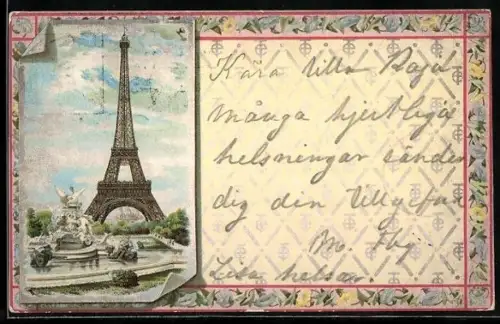 Kära lilla Kaja
många hjertliga
helsningar sänder
dig din
Lisa helsar.